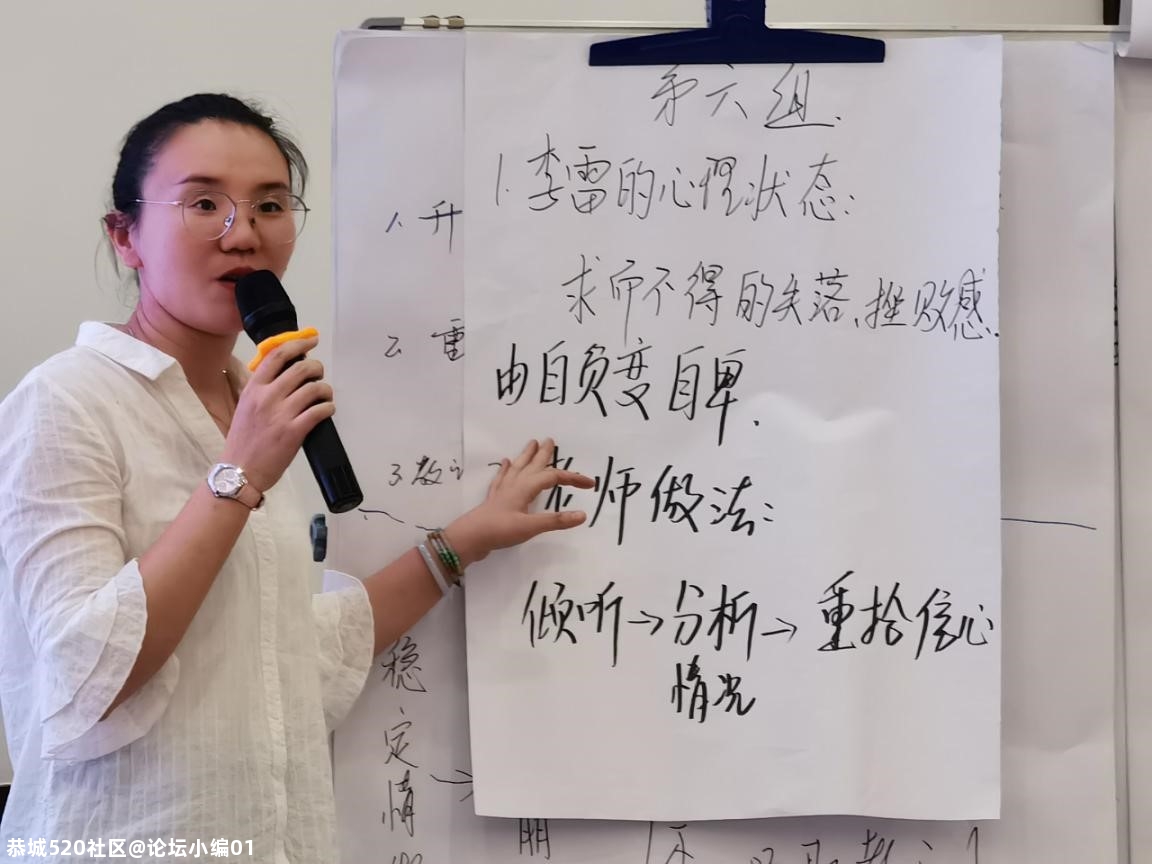 第六组.
1.李雷的心理状态:
求而不得的失落、挫败感.
由自负变自卑.
老师做法:
倾听→分析→重拾信心
情况
1.升
2.重
3.教
稳
定
情
朋
恭城520社区@论坛小编01